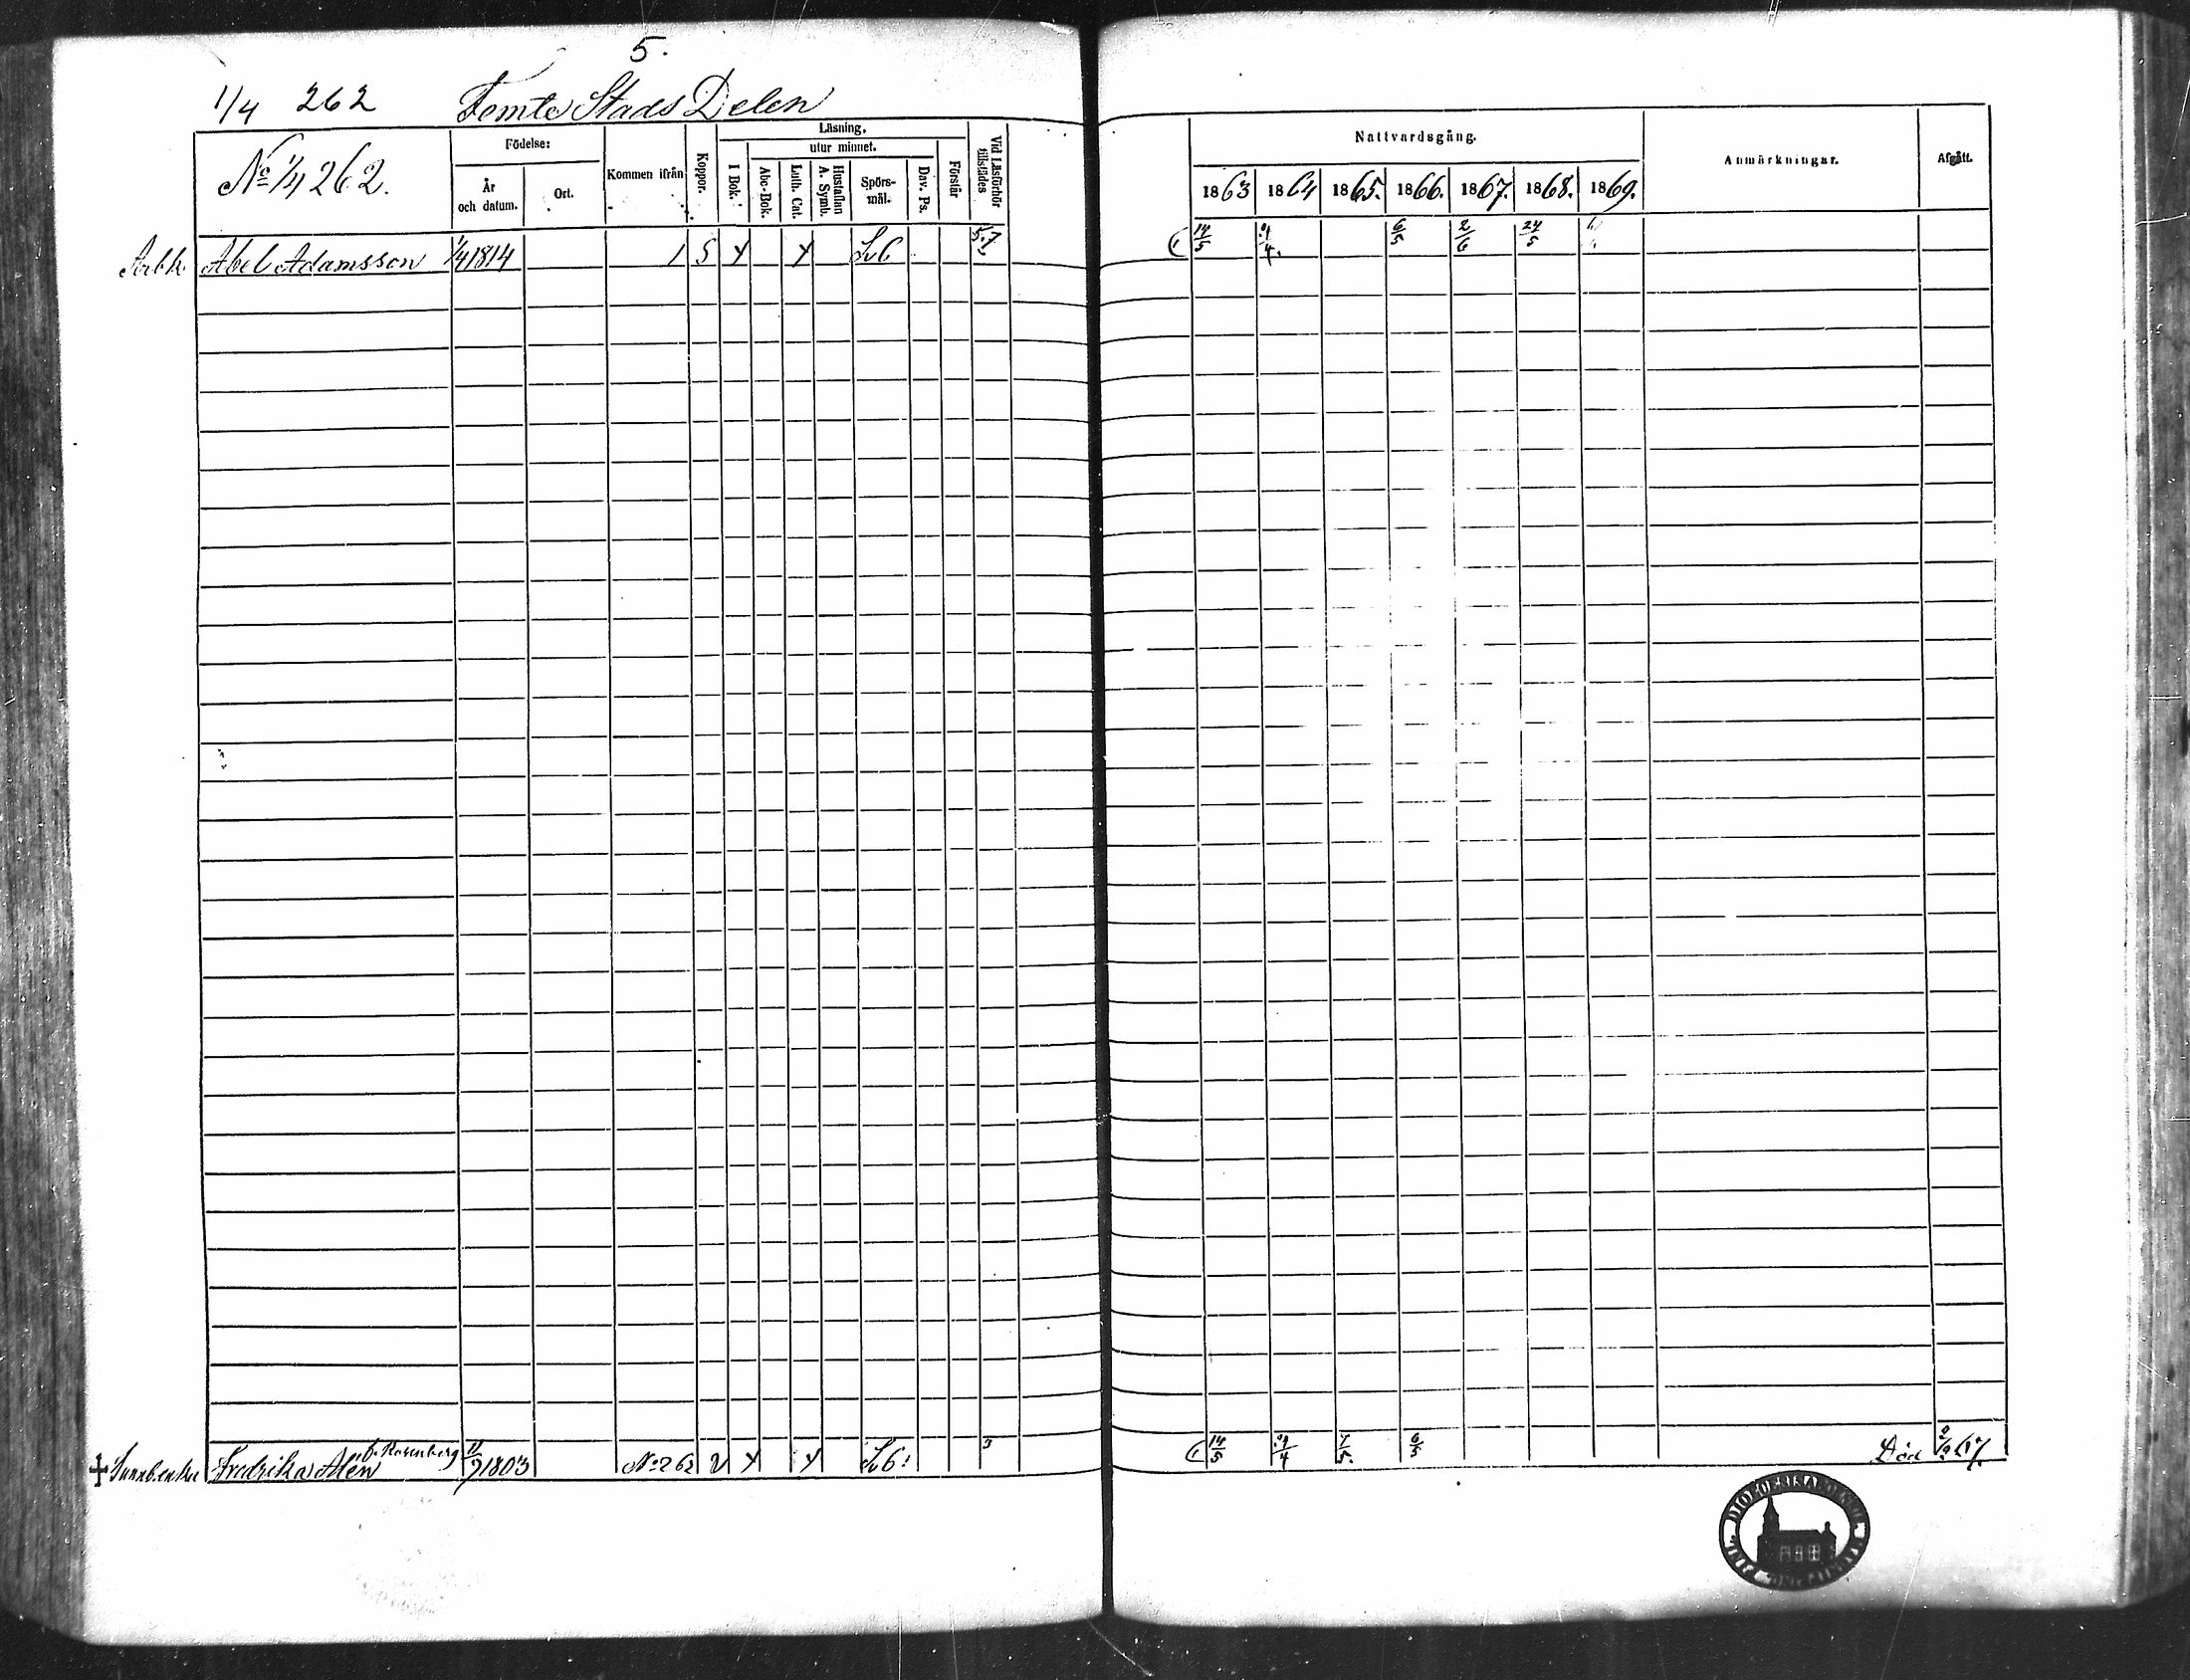 5.
1/4 262 Femte Stads Delen
No 1/4 262.
Födelse:
År och datum.
Ort.
Kommen ifrån
Koppor.
Läsning.
I Bok.
utur minnet.
Abc-Bok.
Luth. Cat.
Hustaflan A. Symb.
Spörsmål.
Dav. Ps.
Förstår
Vid Läsförhör tillstädes
Nattvardsgång.
1863 1864 1865. 1866. 1867. 1868. 1869.
Anmärkningar.
Afgått.
Arbk. Abel Adamsson 1/4 1814 1 S x x Sv6 5.7 14/5 6/5 2/6 24/5
f. Rosenberg
Fredrika Alén 11/7 1803 No 262 v x x Sv6: 3 14/5 7/5. 6/5 Död 67.